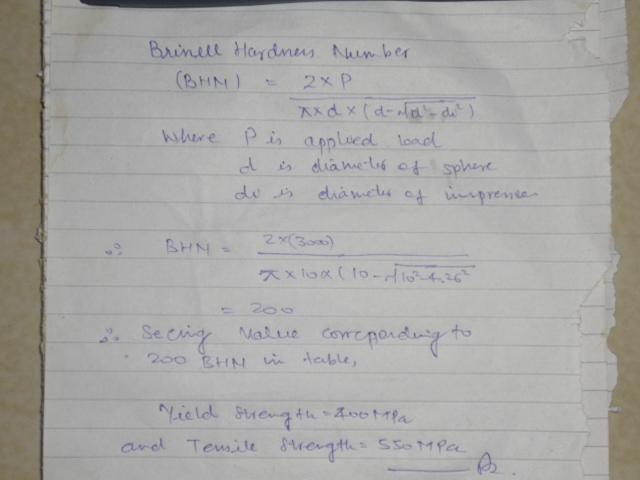 Brinell Hardness Number
(BHN) = 2×P
π×d×(d-√d²-di²)
Where P is applied load
d is diameter of sphere
di is diameter of impression
∴ BHN = 2×(3000)
π×10×(10-√10²-4.26²
= 200
∴ Seeing Value correponding to
200 BHN in table,
Yield Strength = 400 MPa
and Tensile Strength = 550 MPa